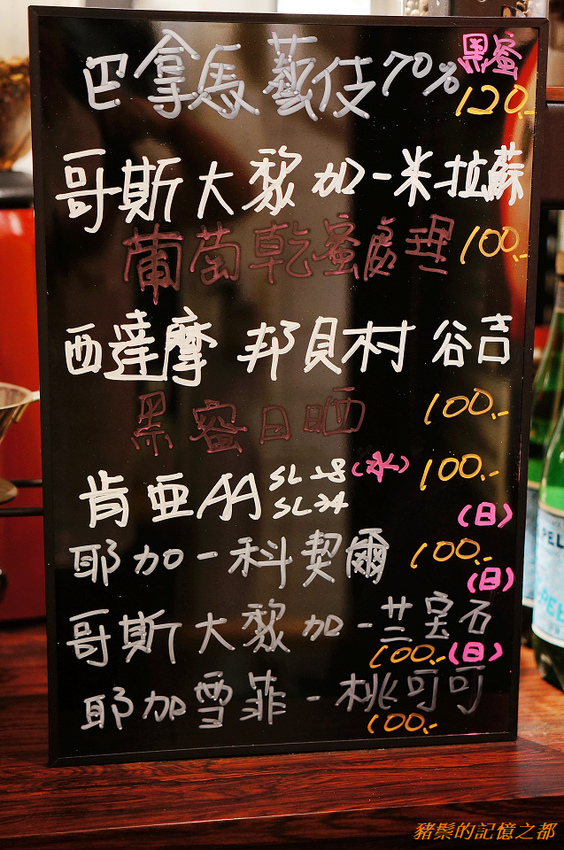 巴拿馬藝伎70% 黑蜜
120.-
哥斯大黎加-米拉蘇
葡萄乾蜜處理 100.-
西達摩 邦貝村 谷吉
黑蜜日晒 100.-
肯亞AA SL28(水) 100.-
SL34
(日)
耶加-科契爾 100.-
(日)
哥斯大黎加-芸寶石
100.-(日)
耶加雪菲-桃可可
100.-
豬鬃的記憶之都